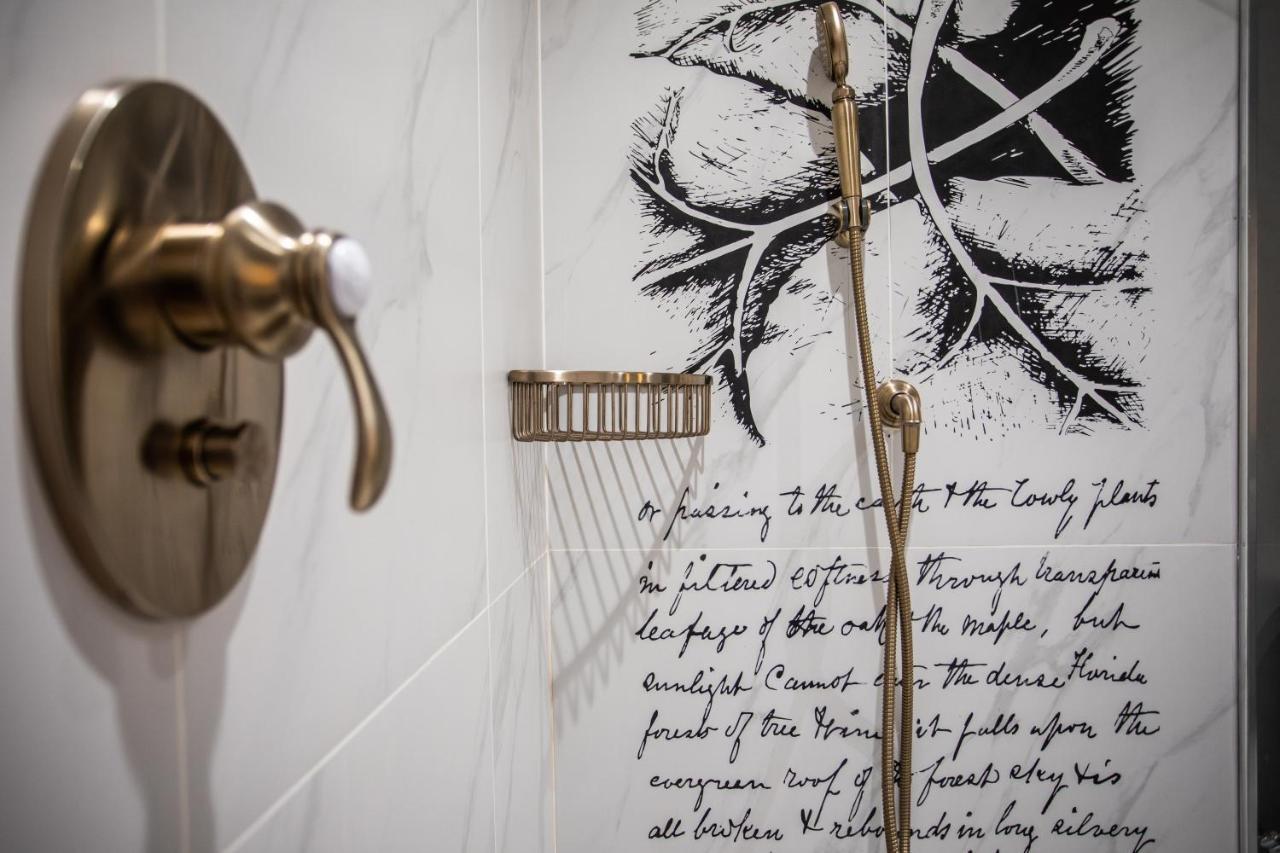 or passing to the earth & the lowly plants
in filtered softness through transparent
leafage of the oak & the maple, but
sunlight Cannot the dense Florida
forests of tree & vine it falls upon the
evergreen roof of forest sky & is
all broken & rebounds in long silvery